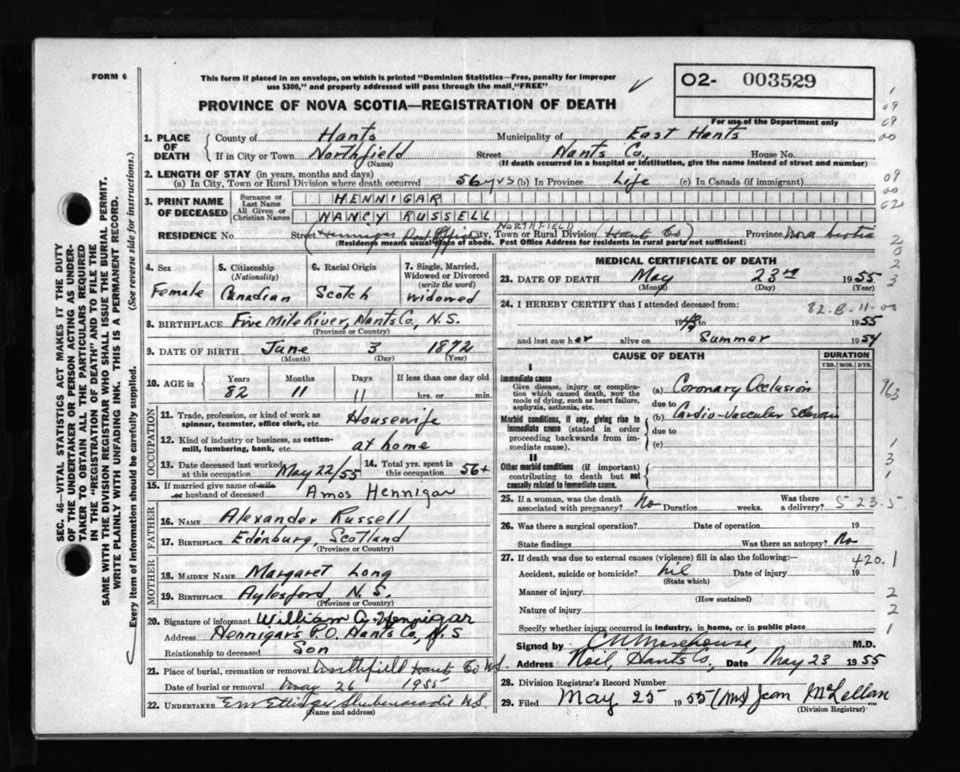 FORM 6
This form if placed in an envelope, on which is printed "Dominion Statistics—Free, penalty for improper
use $300," and properly addressed will pass through the mail, "FREE"
O2- 003529
For use of the Department only
PROVINCE OF NOVA SCOTIA—REGISTRATION OF DEATH
1. PLACE OF DEATH { County of Hants Municipality of East Hants
If in City or Town Northfield (Name) Street Hants Co. House No.
(If death occurred in a hospital or institution, give the name instead of street and number)
2. LENGTH OF STAY (in years, months and days)
(a) In City, Town or Rural Division where death occurred 56 yrs (b) In Province Life (c) In Canada (if immigrant)
3. PRINT NAME OF DECEASED { Surname or Last Name HENNIGAR
All Given or Christian Names NANCY RUSSELL
RESIDENCE No. Street (Hennigar Post Office City, Town or Rural Division NORTHFIELD Hants Co) Province Nova Scotia
(Residence means usual place of abode. Post Office Address for residents in rural parts not sufficient)
4. Sex Female
5. Citizenship (Nationality) Canadian
6. Racial Origin Scotch
7. Single, Married, Widowed or Divorced (write the word) Widowed
8. BIRTHPLACE Five Mile River, Hants Co, N.S.
(Province or Country)
9. DATE OF BIRTH June 3 1872
(Month) (Day) (Year)
10. AGE in { Years 82 Months 11 Days 11 If less than one day old hrs. or min.
OCCUPATION
11. Trade, profession, or kind of work as spinner, teamster, office clerk, etc. Housewife
12. Kind of industry or business, as cotton-mill, lumbering, bank, etc. at home
13. Date deceased last worked at this occupation May 22/55 14. Total yrs. spent in this occupation 56+
15. If married give name of wife or husband of deceased Amos Hennigar
FATHER
16. NAME Alexander Russell
17. BIRTHPLACE Edenburg, Scotland
(Province or Country)
MOTHER
18. MAIDEN NAME Margaret Long
19. BIRTHPLACE Aylesford, N.S.
(Province or Country)
20. Signature of informant William A. Hennigar
Address Hennigars P.O. Hants Co, N.S
Relationship to deceased Son
21. Place of burial, cremation or removal Northfield Hants Co N.S.
Date of burial or removal May 26 1955
22. UNDERTAKER Shubenacadie N.S.
(Name and address)
MEDICAL CERTIFICATE OF DEATH
23. DATE OF DEATH May 23rd 1955
(Month) (Day) (Year)
24. I HEREBY CERTIFY that I attended deceased from: 82-B-11-00
19 to 1955
and last saw her alive on Summer 1954
CAUSE OF DEATH
DURATION
YRS. MOS. DYS.
I
Immediate cause
Give disease, injury or complication which caused death, not the mode of dying, such as heart failure, asphyxia, asthenia, etc.
(a) Coronary Occlusion
due to
Morbid conditions, if any, giving rise to immediate cause (stated in order proceeding backwards from immediate cause).
(b) Cardio-Vascular Sclerosis
due to
(c)
II
Other morbid conditions (if important) contributing to death but not causally related to immediate cause.
25. If a woman, was the death associated with pregnancy? No Duration weeks. Was there a delivery? 5 23-5
26. Was there a surgical operation? Date of operation 19
State findings Was there an autopsy? No
27. If death was due to external causes (violence) fill in also the following:— 420.1
Accident, suicide or homicide? nil Date of injury 19
(State which)
Manner of injury
(How sustained)
Nature of injury
Specify whether injury occurred in industry, in home, or in public place
Signed by M.D.
Address Noel, Hants Co, Date May 23 1955
28. Division Registrar's Record Number
29. Filed May 25 1955 (Mrs) Jean McLellan
(Division Registrar)
SEC. 46—VITAL STATISTICS ACT MAKES IT THE DUTY
OF THE UNDERTAKER OR PERSON ACTING AS UNDER-
TAKER TO OBTAIN ALL THE PARTICULARS REQUIRED
IN THE "REGISTRATION OF DEATH" AND TO FILE THE
SAME WITH THE DIVISION REGISTRAR WHO SHALL ISSUE THE BURIAL PERMIT.
WRITE PLAINLY WITH UNFADING INK. THIS IS A PERMANENT RECORD.
Every item of information should be carefully supplied. (See reverse side for instructions.)